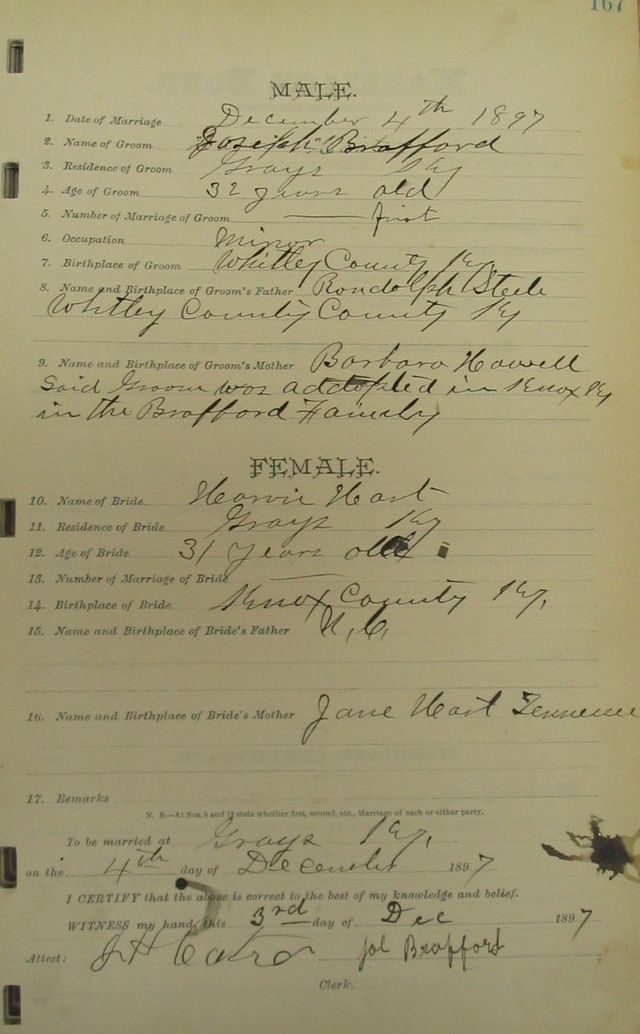 167
MALE.
1. Date of Marriage December 4th 1897
2. Name of Groom Joseph Brafford
3. Residence of Groom Grays Ky
4. Age of Groom 32 years old
5. Number of Marriage of Groom first
6. Occupation Minor
7. Birthplace of Groom Whitley County Ky
8. Name and Birthplace of Groom's Father Rondolph Steele
Whitley County County Ky
9. Name and Birthplace of Groom's Mother Barbara Howell
Said Groom was addopted in Knox Ky
in the Brafford Family
FEMALE.
10. Name of Bride Harvie Hart
11. Residence of Bride Grays Ky
12. Age of Bride 31 years old
13. Number of Marriage of Bride
14. Birthplace of Bride Knox County Ky,
15. Name and Birthplace of Bride's Father N, C,
16. Name and Birthplace of Bride's Mother Jane Hart Tennessee
17. Remarks
N. B.—At Nos. 5 and 13 state whether first, second, etc., Marriage of each or either party.
To be married at Grays Ky,
on the 4th day of December 1897
I CERTIFY that the above is correct to the best of my knowledge and belief.
WITNESS my hand, this 3rd day of Dec 1897
Attest: Joe Brafford
Clerk.